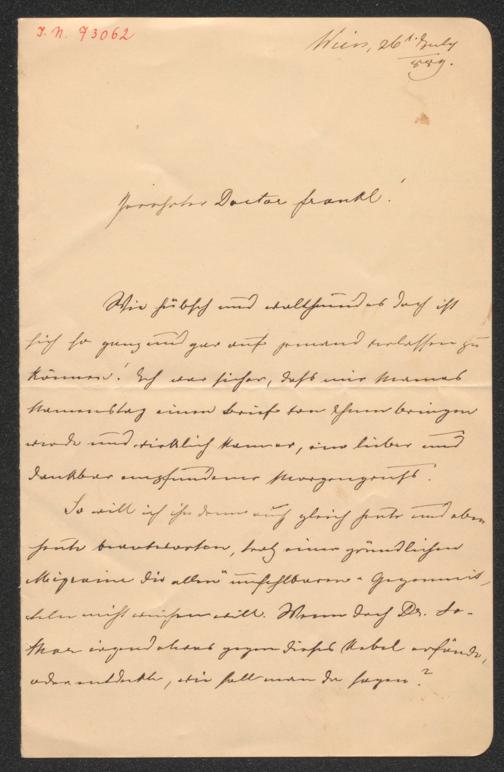 J. N. 73062
Wien, 26t. July
889.
Verehrter Doctor Frankl!
Wie hübsch und wohlthuend es doch ist
sich so ganz und gar auf jemand verlassen zu
können! Ich war sicher, daß mir Mamas
Namenstag einen Brief von Ihnen bringen
werde und wirklich kam er, ein lieber und
dankbar empfundener Morgengruß.
So will ich ihn denn auch gleich heute und eben
heute beantworten, trotz einer gründlichen
Migraine die allen "unfehlbaren" Gegenmit-
teln nicht weichen will. Wenn doch Dr. Lo-
thar irgend etwas gegen dieses Uebel erfände,
oder entdeckte, wie soll man da sagen?